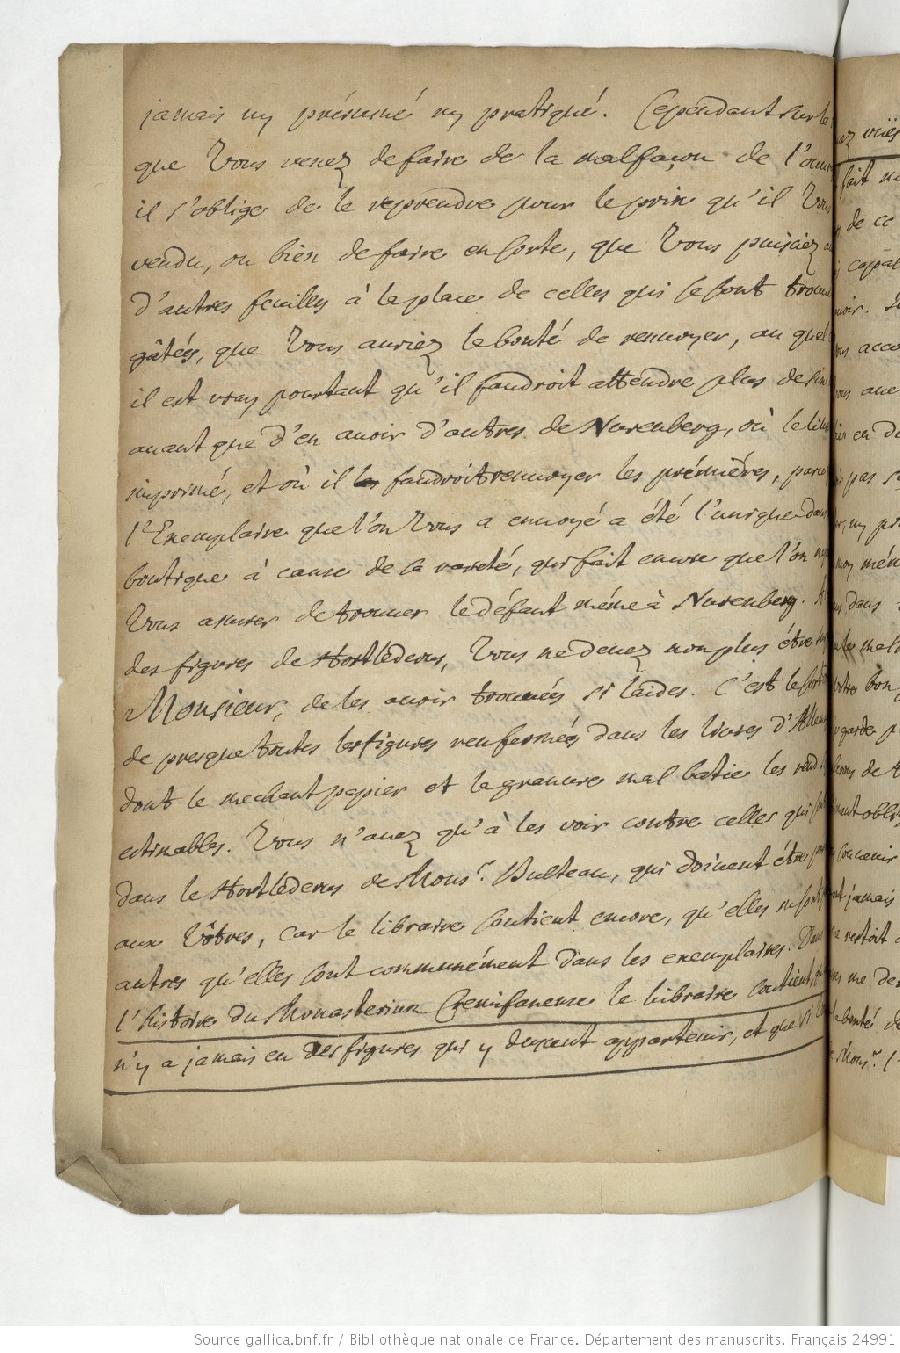 jamais ny présumé ny pratiqué. Cependant sur le
que Vous venez de faire de la malfaçon de l'ouu
il s'oblige de le reprendre pour le prix qu'il Vous
vendu, ou bien de faire en sorte, que Vous puissiez
d'autres feuilles à la place de celles qui se sont trouu
gâtées, que Vous auriez la bonté de renvoyer, au quel
il est vray pourtant qu'il faudroit attendre plus de
auant que d'en auoir d'autres de Nurenberg, où le liu
imprimé, et où il faudroit renvoyer les prémiéres, parce
l'Exemplaire que l'on Vous a envoyé a été l'unique dans
boutique à cause de sa rareté, qui fait encore que l'on
Vous assurer de trouuer le défaut même à Nurenberg.
des figures de Hortlederus, Vous ne deuez non plus étre
Monsieur, de les auoir trouuées si laides. C'est le sort
de presque toutes les figures renfermées dans les liures d'Allem
dont le mechant papier et la grauure mal batie les rend
estimables. Vous n'auez qu'à les voir contre celles qui
dans le Hortlederus de Mons.r Bulteau, qui doiuent étre
aux Vôtres, car le libraire soutient encore, qu'elles
autres qu'elles sont communément dans les exemplaires.
l'histoire du Monasterium Cremifanense le libraire soutient,
n'y a jamais eu des figures qui y dussent appartenir, et que
uez
fait
de ce
capa
uoir.
ous acco
ous aue
en
pas
ny
moy mém
dans
votre bon
garde
de
ant oblig
conuenir
jamais
restoit
me de
bonté de
Mons.r
Source gallica.bnf.fr / Bibliothèque nationale de France. Département des manuscrits. Français 24991